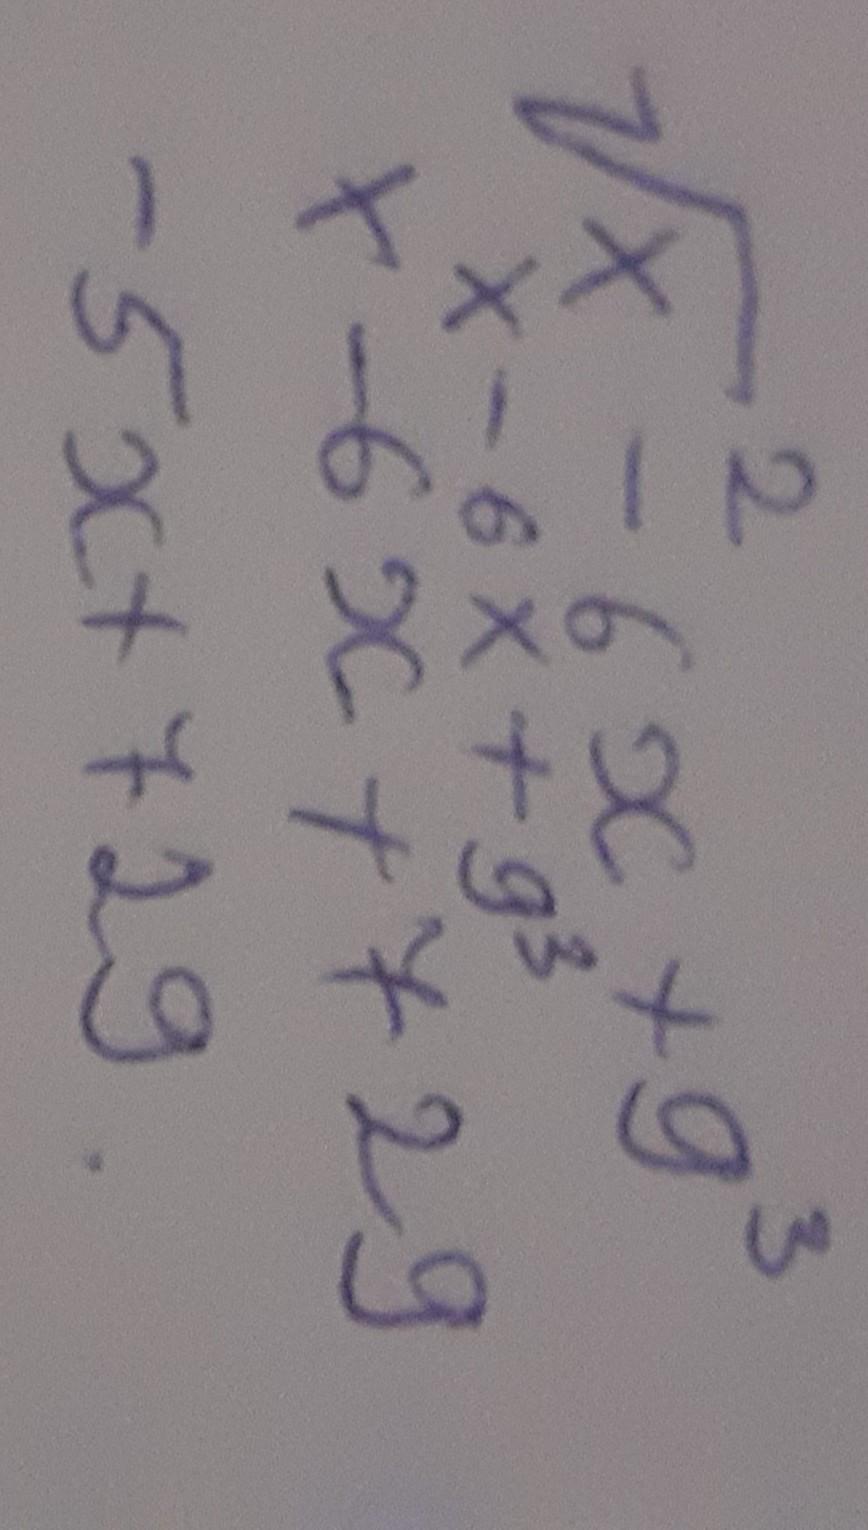 √x² - 6x + 9³
x - 6x + 9³
x - 6x + 729
- 5x + 729.